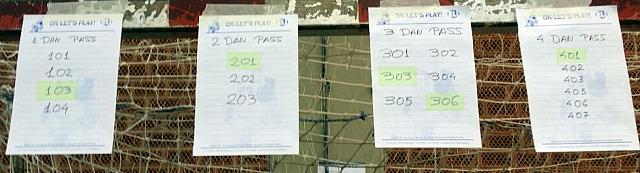 OK LET'S PLAY!
1 DAN PASS
101
102
103
104
OK LET'S PLAY!
2 DAN PASS
201
202
203
OK LET'S PLAY!
3 DAN PASS
301 302
303 304
305 306
OK LET'S PLAY!
4 DAN PASS
401
402
403
405
406
407